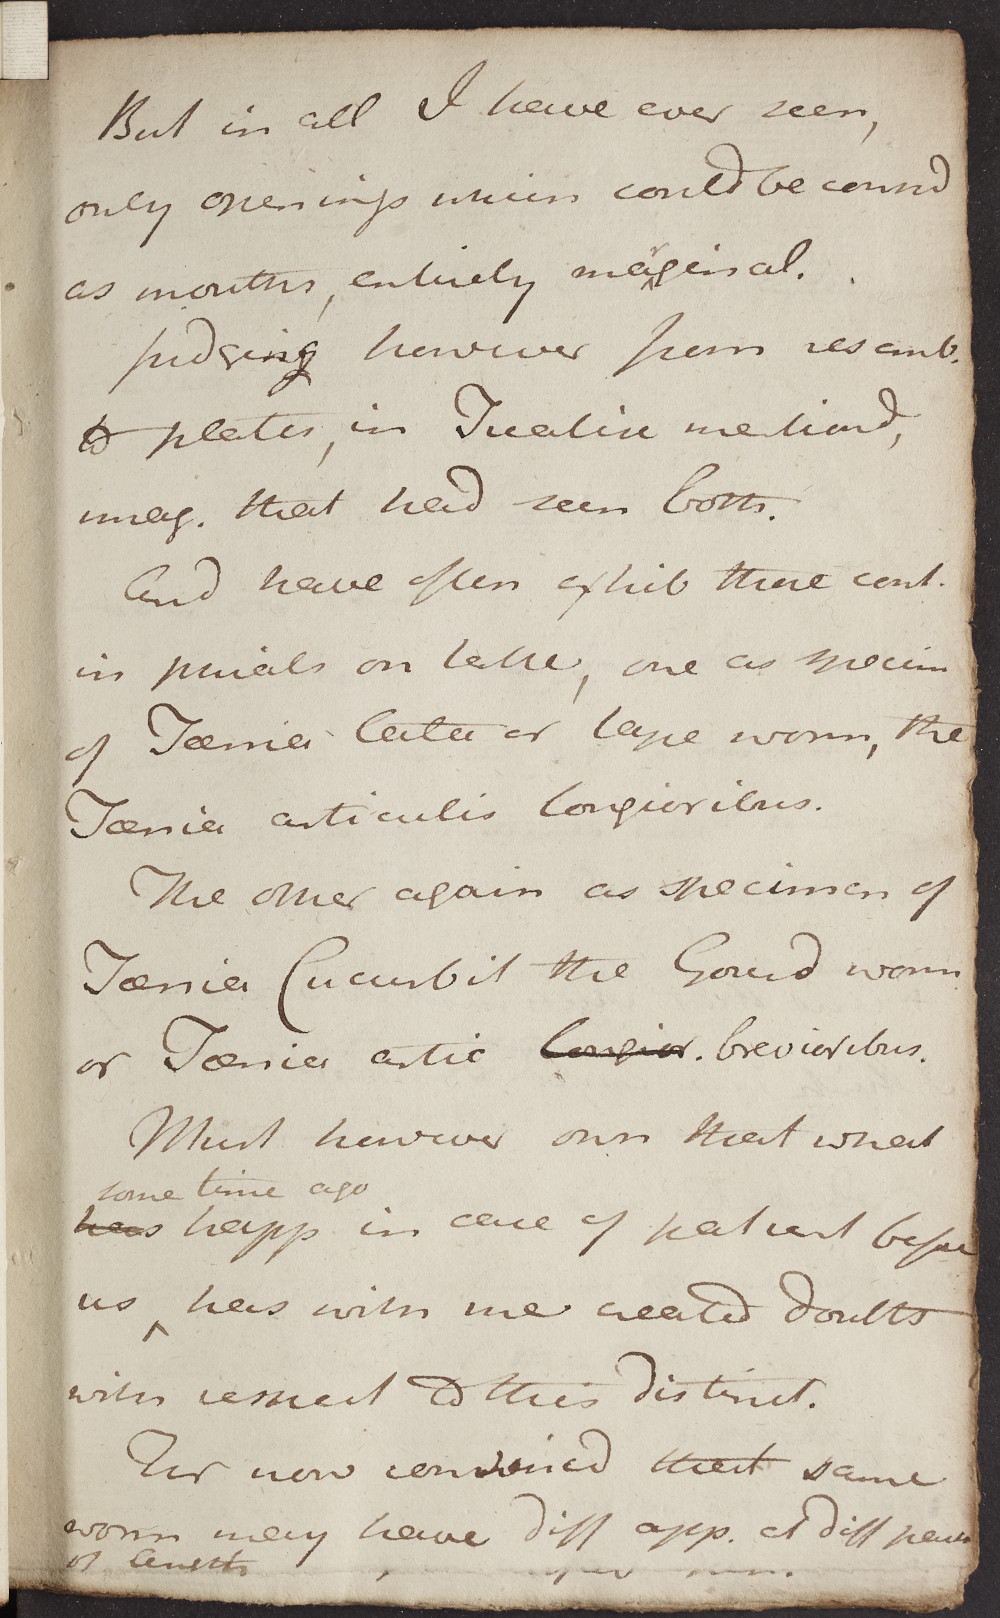 But in all I have ever seen,
only openings which could be consd
as mouths, entirely marginal.
Judging however from resemb.
to plates, in Treatise mentiond,
imag. that had seen both.
And have often exhib these cont.
in phials on table, one as specim
of Tænia lata or tape worm, the
Tænia articulis longioribus.
The other again as specimen of
Tænia Cucurbit the Gourd worm
or Tænia artic longior. brevioribus.
Must however own that what
some time ago
has happ in case of patient before
us has with me created doubts
with respect to this distinct.
For now convinced that same
worm may have diff app. at diff
of length